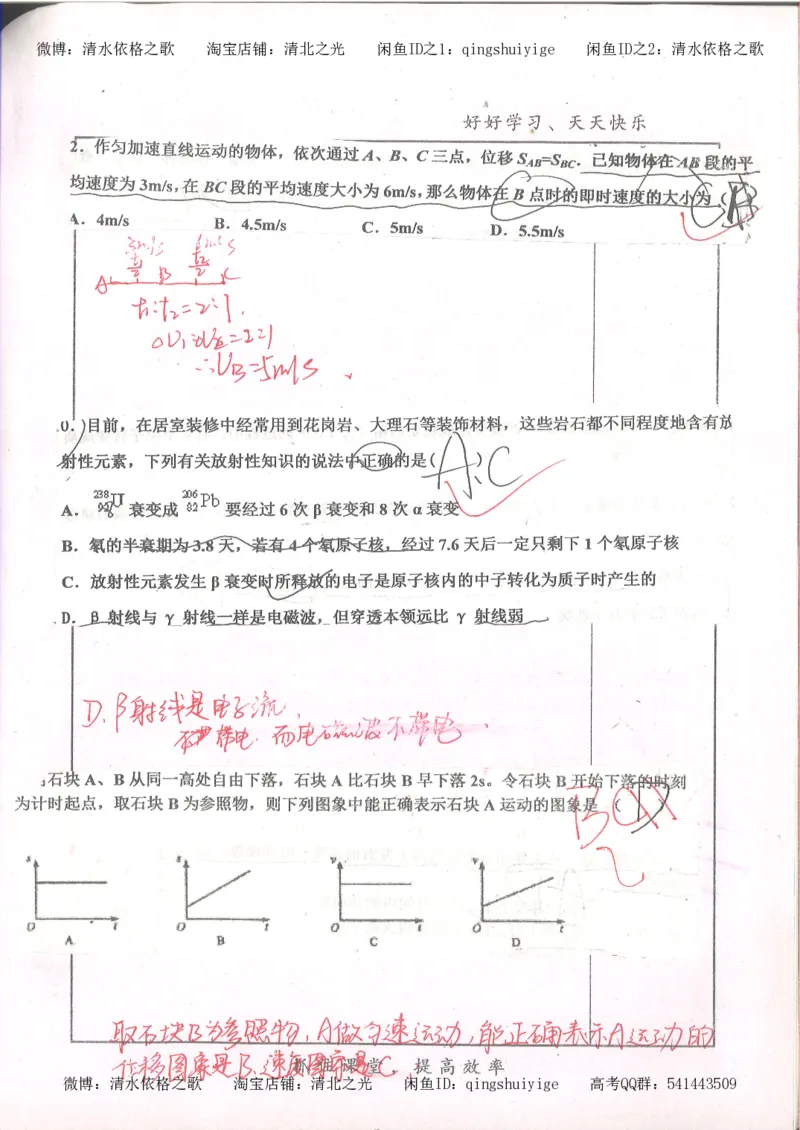 微博：清水依格之歌 淘宝店铺：清北之光 闲鱼ID之1：qingshuiyige 闲鱼ID之2：清水依格之歌
好好学习、天天快乐
2．作匀加速直线运动的物体，依次通过 A、B、C 三点，位移 SAB=SBC．已知物体在 AB 段的平
均速度为 3m/s，在 BC 段的平均速度大小为 6m/s，那么物体在 B 点时的即时速度的大小为（C）
A．4m/s B．4.5m/s C．5m/s D．5.5m/s
3m/s 6m/s
t₁/2 t₂/2
A B C
t₁:t₂=2:1
∴VB=5m/s
0．目前，在居室装修中经常用到花岗岩、大理石等装饰材料，这些岩石都不同程度地含有放
射性元素，下列有关放射性知识的说法中正确的是（ A、C ）
A．²³⁸₉₂U 衰变成 ²⁰⁶₈₂Pb 要经过 6 次 β 衰变和 8 次 α 衰变
B．氡的半衰期为 3.8 天，若有 4 个氡原子核，经过 7.6 天后一定只剩下 1 个氡原子核
C．放射性元素发生 β 衰变时所释放的电子是原子核内的中子转化为质子时产生的
D．β 射线与 γ 射线一样是电磁波，但穿透本领远比 γ 射线弱
D. β射线是电子流，
带电．而电磁波不带电．
石块 A、B 从同一高处自由下落，石块 A 比石块 B 早下落 2s。令石块 B 开始下落的时刻
为计时起点，取石块 B 为参照物，则下列图象中能正确表示石块 A 运动的图象是（
BC
s s v v
O t O t O t O t
A B C D
取石块B为参照物，A做匀速运动，能正确表示A运动的
位移图象是B，速度图象是C。
课堂，提高效率
微博：清水依格之歌 淘宝店铺：清北之光 闲鱼ID：qingshuiyige 高考QQ群：541443509